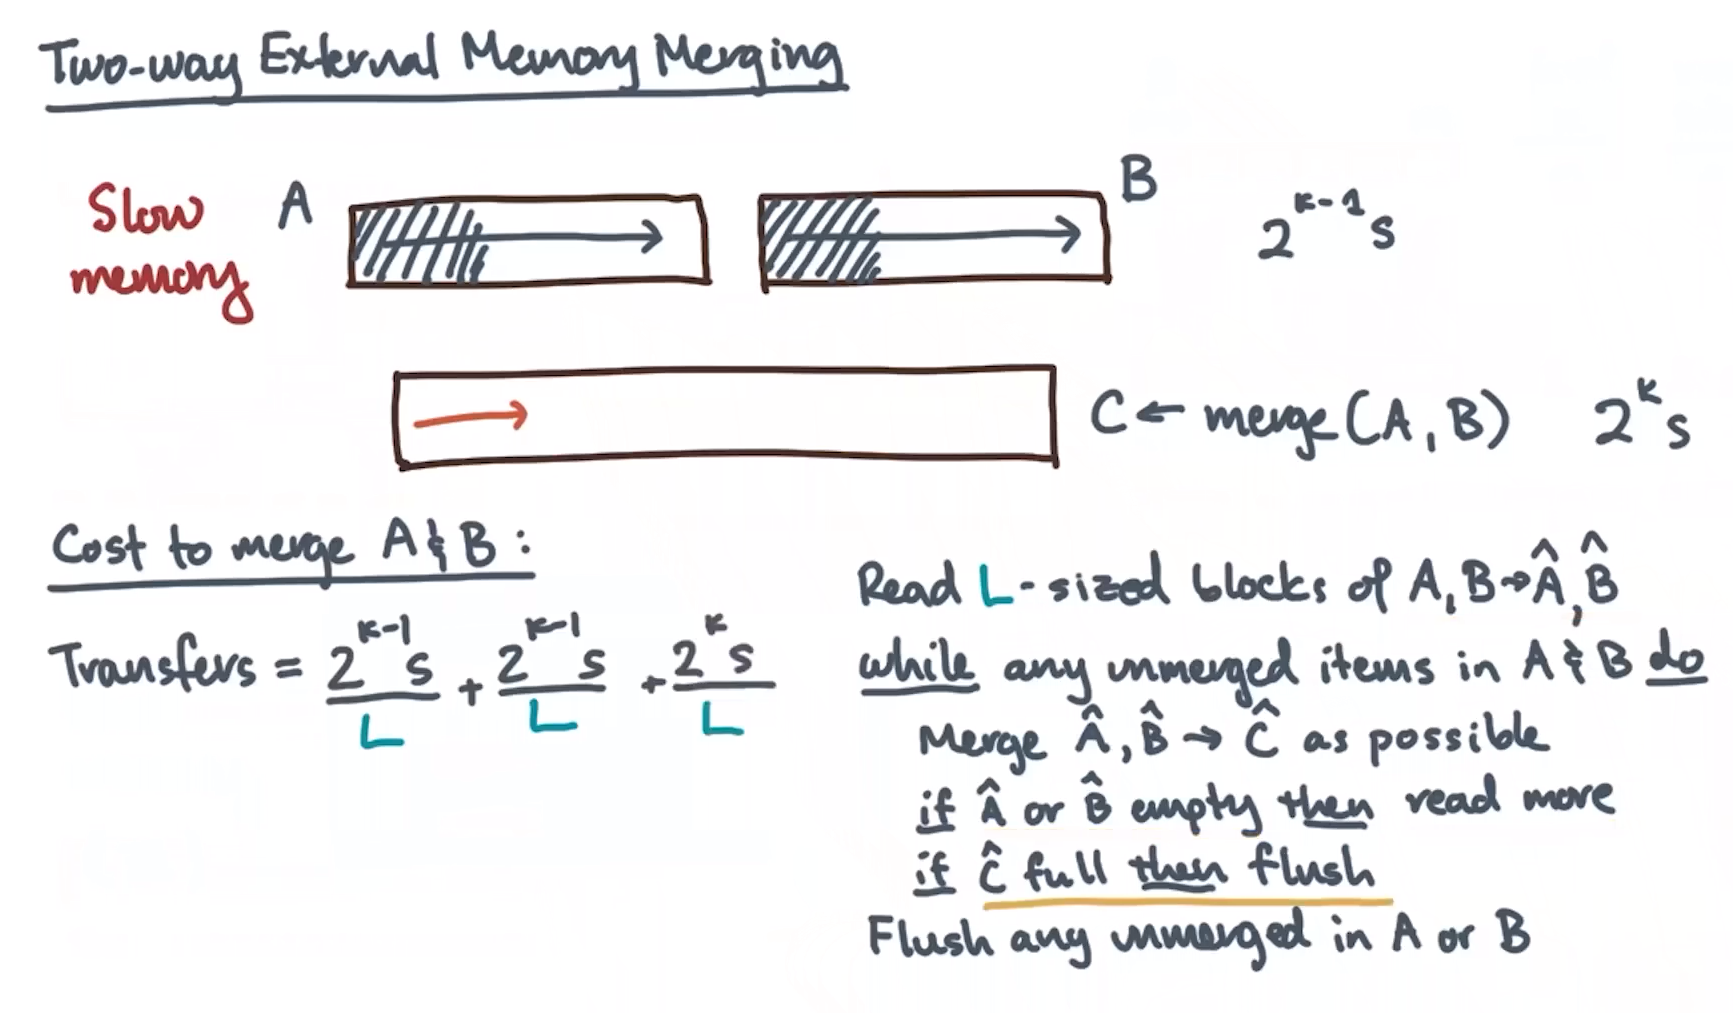 Two-way External Memory Merging
Slow memory
A
B
2^{k-1} s
C ← merge(A, B) 2^k s
Cost to merge A & B:
Transfers = \frac{2^{k-1} s}{L} + \frac{2^{k-1} s}{L} + \frac{2^k s}{L}
Read L-sized blocks of A, B → Â, B̂
while any unmerged items in A & B do
Merge Â, B̂ → Ĉ as possible
if Â or B̂ empty then read more
if Ĉ full then flush
Flush any unmerged in A or B